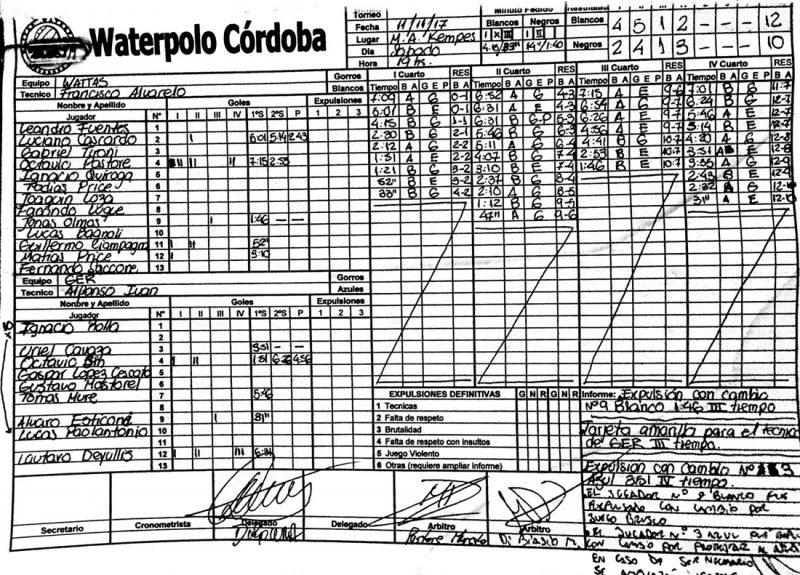 Waterpolo Córdoba
Torneo
Fecha 11/11/17
Lugar M.A. Kempes
Dia Sabado
Hora 19 hs.
Minuto Pedido
Blancos Negros
I X III I II
Resultado
Blancos 4 5 1 2 - - - 12
Negros 2 4 1 3 - - - 10
Equipo NATTAS Gorros
Tecnico Francisco Alvarelo Blancos
Nombre y Apellido Goles Expulsiones
Jugador N° I II III IV 1°S 2°S P 1 2 3
Leandro Fuentes 1
Luciano Cascardo 2 II 5:01 5:14 2:43
Gabriel Tironi 3
Octavio Pastore 4 7:15 2:53
Ignacio Quiroga 5
Tobias Price 6
Joaquin Loza 7
Facundo Luque 8
Jonas Olmas 9 I 1:46 - -
Lucas Bagnoli 10
Guillermo Ciampagna 11 I II 52"
Matias Price 12 I 3:10
Fernando Saccone 13
Equipo GER Gorros
Tecnico Alfonso Juan Azules
Nombre y Apellido Goles Expulsiones
Jugador N° I II III IV 1°S 2°S P 1 2 3
Ignacio Rolla 1
2
Uriel Cavaza 3 3:51 - -
Octavio Bin 4 I II 1:31 6:26 4:56
Gaspar Lopez 5
Gustavo Mastorel 6
Tomas Mure 7 5:46
8
Alvaro 9 I 31"
Lucas Paolantonio 10
11
Lautaro Deyullis 12 I II III IV 6:31
13
I Cuarto RES II Cuarto RES III Cuarto RES IV Cuarto RES
Tiempo B A G E P B A Tiempo B A G E P B A Tiempo B A G E P B A Tiempo B A G E P B A
7:09 A G 0-1 6:52 A G 4-3 7:15 A E 9-6 7:01 B G 11-7
5:01 B E 0-1 6:31 A E 4-3 6:54 A G 9-7 6:24 B G 12-7
4:15 B G 1-1 6:31 B G-P 5-3 6:26 A E 9-7 5:46 A E 12-7
2:30 B G 2-1 5:46 B G 6-3 4:56 A E 9-7 5:14 B E 12-7
2:12 A G 2-2 5:11 A G 6-4 4:41 B G 10-7 4:20 A G 12-8
1:31 A E 2-2 4:07 B G 7-4 2:53 B E 10-7 3:51 A E 12-8
1:21 B G 3-2 3:10 B E 7-4 1:46 B E 10-7 3:35 A G 12-9
52" B E 3-2 2:37 B G 8-4 2:43 B E 12-9
33" B G 4-2 2:10 A G 8-5 2:32 A G 12-10
1:12 B G 9-5 31" A E 12-10
47" A G 9-6
EXPULSIONES DEFINITIVAS G N R G N R
1 Tecnicas
2 Falta de respeto
3 Brutalidad
4 Falta de respeto con insultos
5 Juego Violento
6 Otras (requiere ampliar informe)
Informe: Expulsión con cambio
N°9 Blanco 1:46 III tiempo
Tarjeta amarilla para el tecnico
de GER III tiempo.
Expulsion con cambio N° 3
Azul 3:51 IV tiempo.
EL JUGADOR N° 9 BLANCO FUE
EXPULSADO CON CAMBIO POR
JUEGO BRUSCO
EL JUGADOR N° 3 AZUL FUE
CON CAMBIO POR PROTESTAR
EN CASO DE SER NECESARIO
SE
Secretario
Cronometrista
Delegado
Delegado
Arbitro
Arbitro
Di Biasio M.